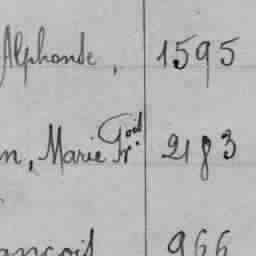 Alphonde, 1595
n, Marie God Fr. 2183
ançois 966